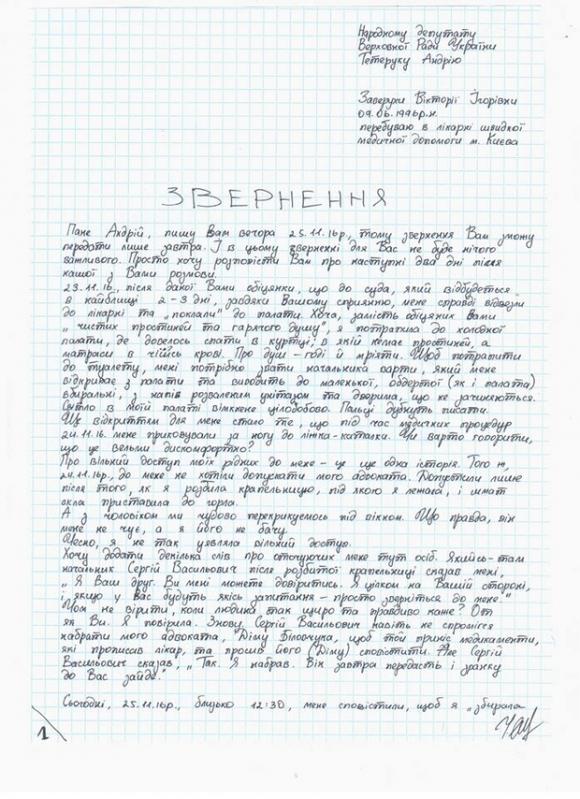 Народному депутату
Верховної Ради України
Тетеруку Андрію
Заверухи Вікторії Ігорівни
09.06.1996р.н.
перебуваю в лікарні швидкої
медичної допомоги м. Києва
ЗВЕРНЕННЯ
Пане Андрій, пишу Вам вечора 25.11.16р., тому звернення Вам зможу
передати лише завтра. І в цьому зверненні для Вас не буде нічого
важливого. Просто хочу розповісти Вам про наступні два дні після
нашої з Вами розмови.
23.11.16., після даної Вами обіцянки, що до суда, який відбудеться
в найближці 2-3 дні, завдяки Вашому сприянню, мене справді відвезли
до лікарні та „поклали" до палати. Хоча, замість обіцяних Вами
„чистих простиней та гарячого душу", я потрапила до холодної
палати, де довелось спати в куртці; в якій немає простиней, а
матраси в чиїйсь крові. Про душ – годі й мріяти. Щоб потрапити
до туалету, мені потрібно звати начальника варти, який мене
відкриває з палати та виводить до маленької, обдертої (як і палата)
вбиральні, з напів розваленим унітазом та дверима, що не зачиняються.
Світло в моїй палаті вімкнене цілодобово. Пальці дубнуть писати.
Ще відкриттям для мене стало те, що під час медичних процедур
24.11.16. мене приковували за ногу до ліжка-каталки. Чи варто говорити,
що це вельми дискомфортно?
Про вільний доступ моїх рідних до мене – це ще одна історія. Того ж,
24.11.16р., до мене не хотіли допускати мого адвоката. Допустили лише
після того, як я розбила крапельницю, під якою я лежала, і шмат
скла приставила до горла.
А з чоловіком ми чудово перекрикуємось під вікном. Що правда, він
мене не чує, а я його не бачу.
Чесно, я не так уявляла вільний доступ.
Хочу додати декілька слів про оточуючих мене тут осіб. Якийсь-там
начальник Сергій Васильович після розбитої крапельниці сказав мені,
„Я Ваш друг. Ви мені можете довіритись. Я цілком на Вашій стороні,
і якщо у Вас будуть якісь запитання – просто зверніться до мене."
Чом не вірити, коли людина так щиро та правдиво каже? От
як Ви. Я повірила. Знову, Сергій Васильович навіть не спромігся
набрати мого адвоката, Діму Біловчука, щоб той приніс медикаменти,
які прописав лікар, та просив його (Діму) сповістити. Але Сергій
Васильович сказав, „Так. Я набрав. Він завтра передасть і зранку
до Вас зайде."
Сьогодні, 25.11.16р., близько 12:30, мене сповістили, щоб я „збирала
1